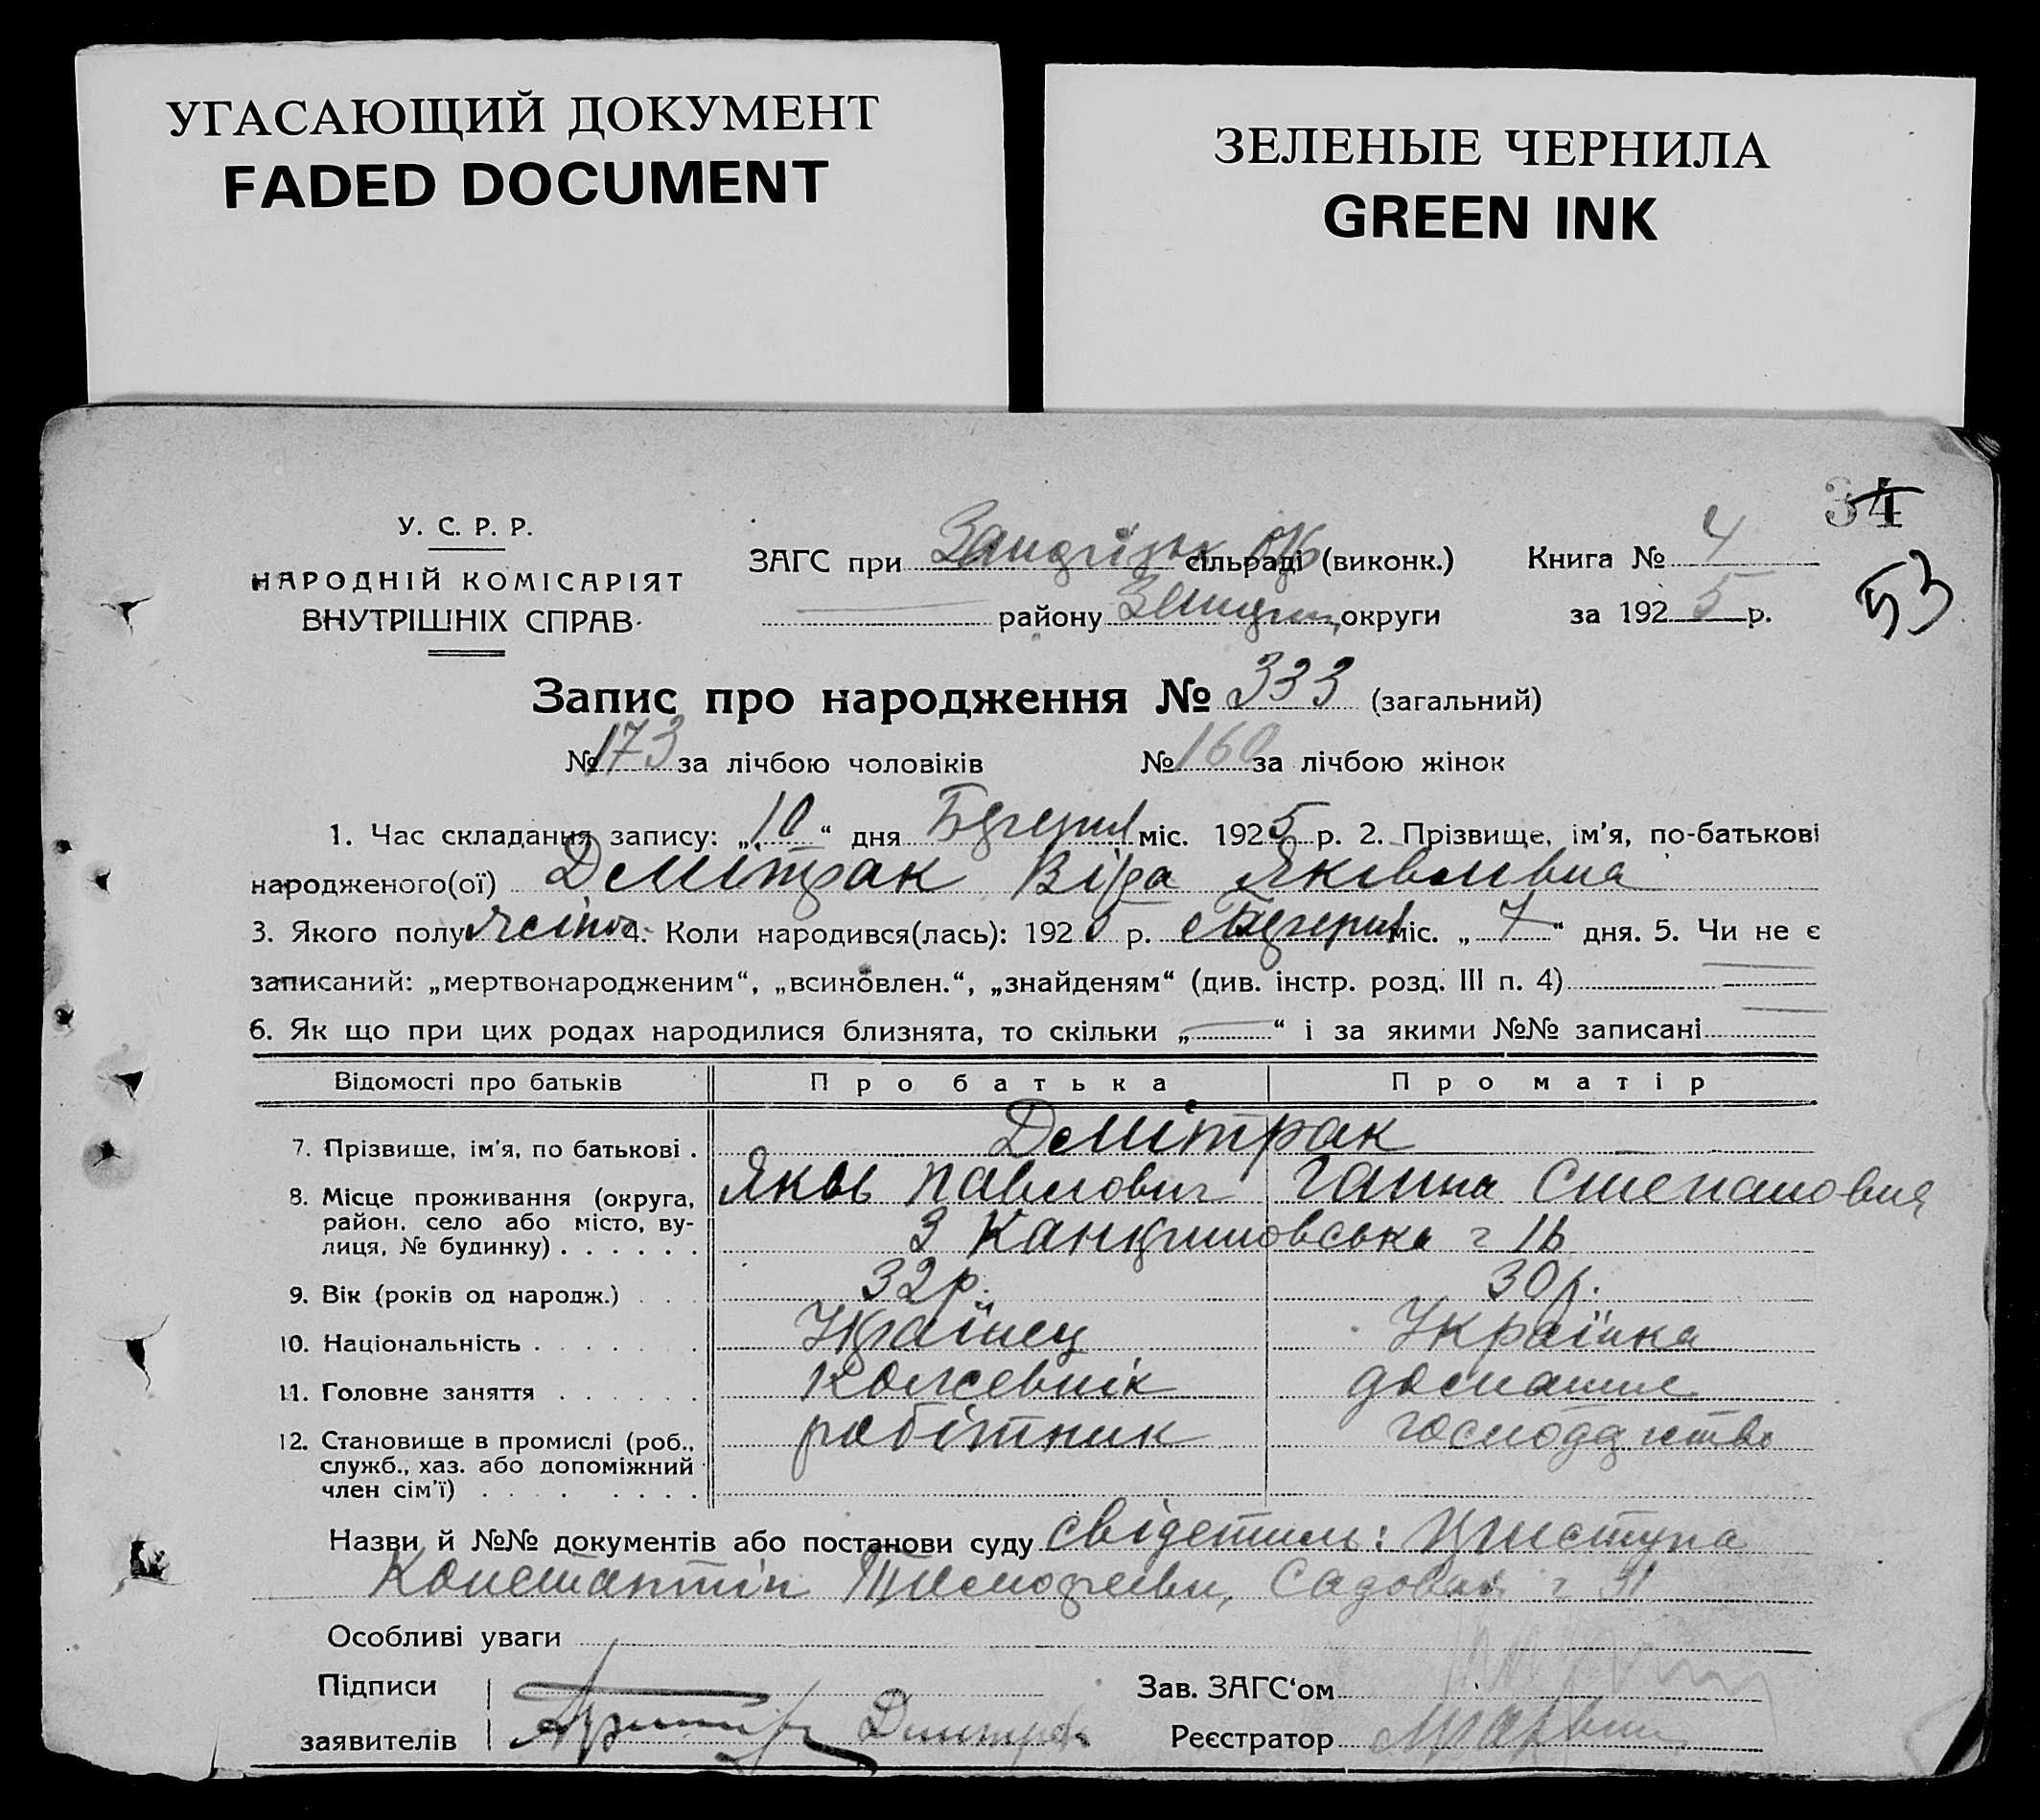 УГАСАЮЩИЙ ДОКУМЕНТ
FADED DOCUMENT
ЗЕЛЕНЫЕ ЧЕРНИЛА
GREEN INK
34
53
У. С. Р. Р.
НАРОДНІЙ КОМІСАРІЯТ
ВНУТРІШНІХ СПРАВ
ЗАГС при сільраді (виконк.)
району округи
Книга № 4
за 1925 р.
Запис про народження № 333 (загальний)
№ 173 за лічбою чоловіків № 160 за лічбою жінок
1. Час складання запису: „10“ дня міс. 1925 р. 2. Прізвище, ім’я, по-батькові
народженого(ої) Демітрак Віра Яківлівна
3. Якого полу 4. Коли народився(лась): 1925 р. міс. „7“ дня. 5. Чи не є
записаний: „мертвонародженим“, „всиновлен.“, „знайденям“ (див. інстр. розд. III п. 4)
6. Як що при цих родах народилися близнята, то скільки „ “ і за якими №№ записані
Відомості про батьків Про батька Про матір
7. Прізвище, ім’я, по батькові . Демітрак
Яков Павлович Ганна Степановна
8. Місце проживання (округа,
район, село або місто, ву-
лиця, № будинку) . . . . . . З 16
9. Вік (років од народж.) . . . 32 р. 30 р.
10. Національність . . . . . . . Українец Українка
11. Головне заняття . . . . . . Кожевнік домашнє
12. Становище в промислі (роб., робітник господарство
служб., хаз. або допоміжний
член сім’ї) . . . . . . . .
Назви й №№ документів або постанови суду свідетиль:
Константін Садовая 31
Особливі уваги
Підписи
заявителів
Зав. ЗАГС‘ом
Реєстратор